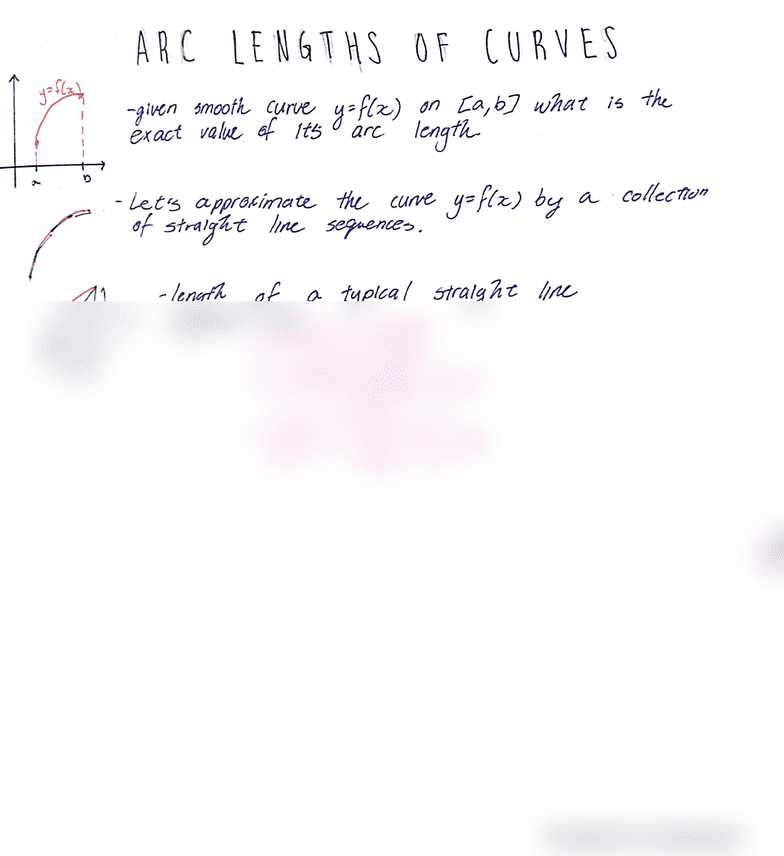 ARC LENGTHS OF CURVES
y=f(x)
-given smooth curve y=f(x) on [a,b] what is the
exact value of its arc length
a b
-Let's approximate the curve y=f(x) by a collection
of straight line sequences.
-length of a typical straight line